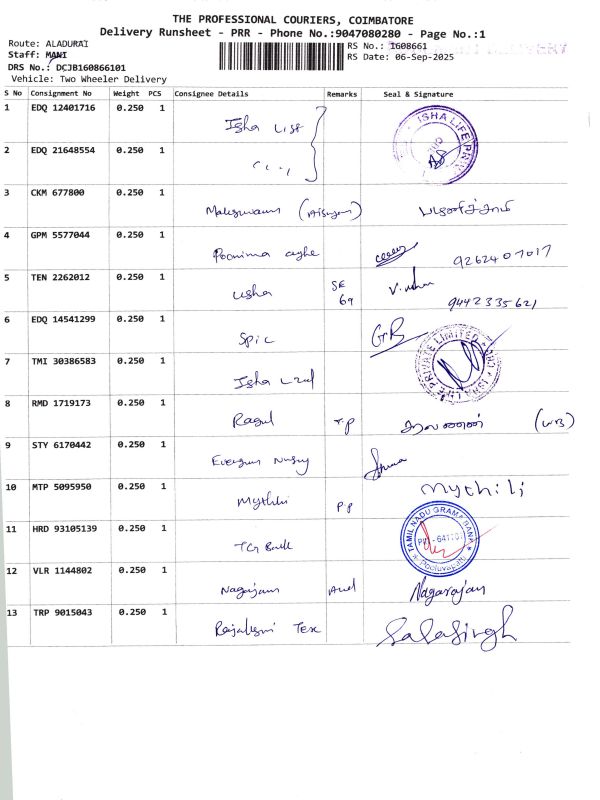 THE PROFESSIONAL COURIERS, COIMBATORE
Delivery Runsheet - PRR - Phone No.:9047080280 - Page No.:1
Route: ALADURAI
RS No.: 1608661
Staff: MANI
RS Date: 06-Sep-2025
DRS No.: DCJB160866101
Vehicle: Two Wheeler Delivery
S No Consignment No Weight PCS Consignee Details Remarks Seal & Signature
1 EDQ 12401716 0.250 1 Isha ISHA LIFE
2 EDQ 21648554 0.250 1
3 CKM 677800 0.250 1
4 GPM 5577044 0.250 1 Poornima 9262407017
5 TEN 2262012 0.250 1 Usha SE 69 9442335621
6 EDQ 14541299 0.250 1 Spic GRB
7 TMI 30386583 0.250 1 Isha ISHA LIFE PRIVATE LIMITED
8 RMD 1719173 0.250 1 Ragul
9 STY 6170442 0.250 1
10 MTP 5095950 0.250 1 Mythili Mythili
11 HRD 93105139 0.250 1 TAMIL NADU GRAMA BANK Pooluvapatti
12 VLR 1144802 0.250 1 Nagarajan Nagarajan
13 TRP 9015043 0.250 1 Tex